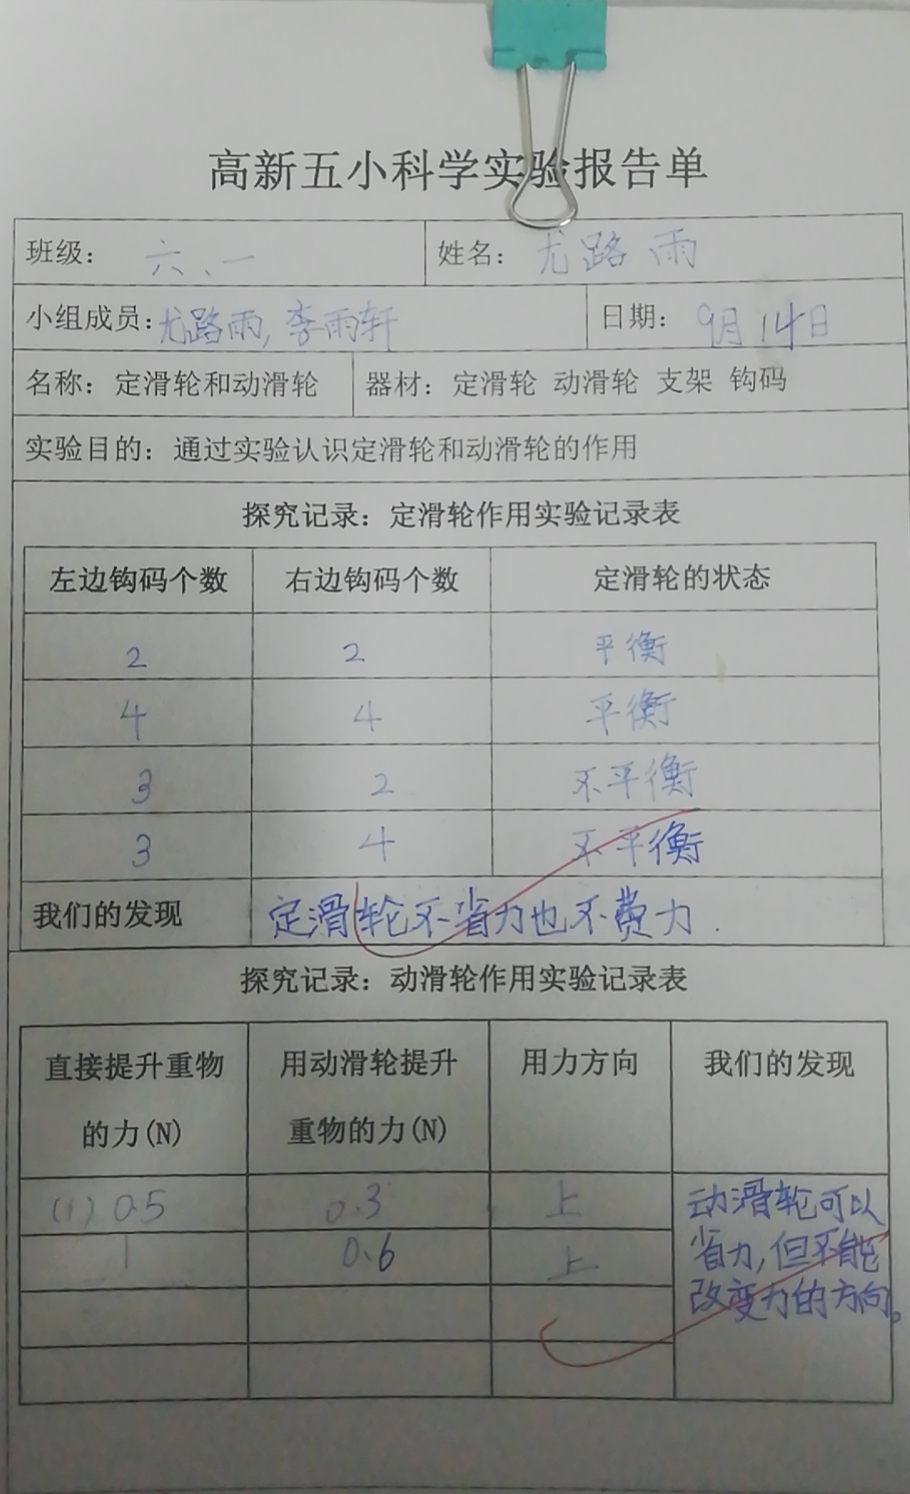 高新五小科学实验报告单
班级： 六、一 姓名： 尤路雨
小组成员：尤路雨，李雨轩 日期： 9月14日
名称：定滑轮和动滑轮 器材：定滑轮 动滑轮 支架 钩码
实验目的：通过实验认识定滑轮和动滑轮的作用
探究记录：定滑轮作用实验记录表
左边钩码个数 右边钩码个数 定滑轮的状态
2 2 平衡
4 4 平衡
3 2 不平衡
3 4 不平衡
我们的发现 定滑轮不省力也不费力．
探究记录：动滑轮作用实验记录表
直接提升重物 用动滑轮提升 用力方向 我们的发现
的力(N) 重物的力(N)
(1) 0.5 0.3 上 动滑轮可以
1 0.6 上 省力，但不能
改变力的方向。